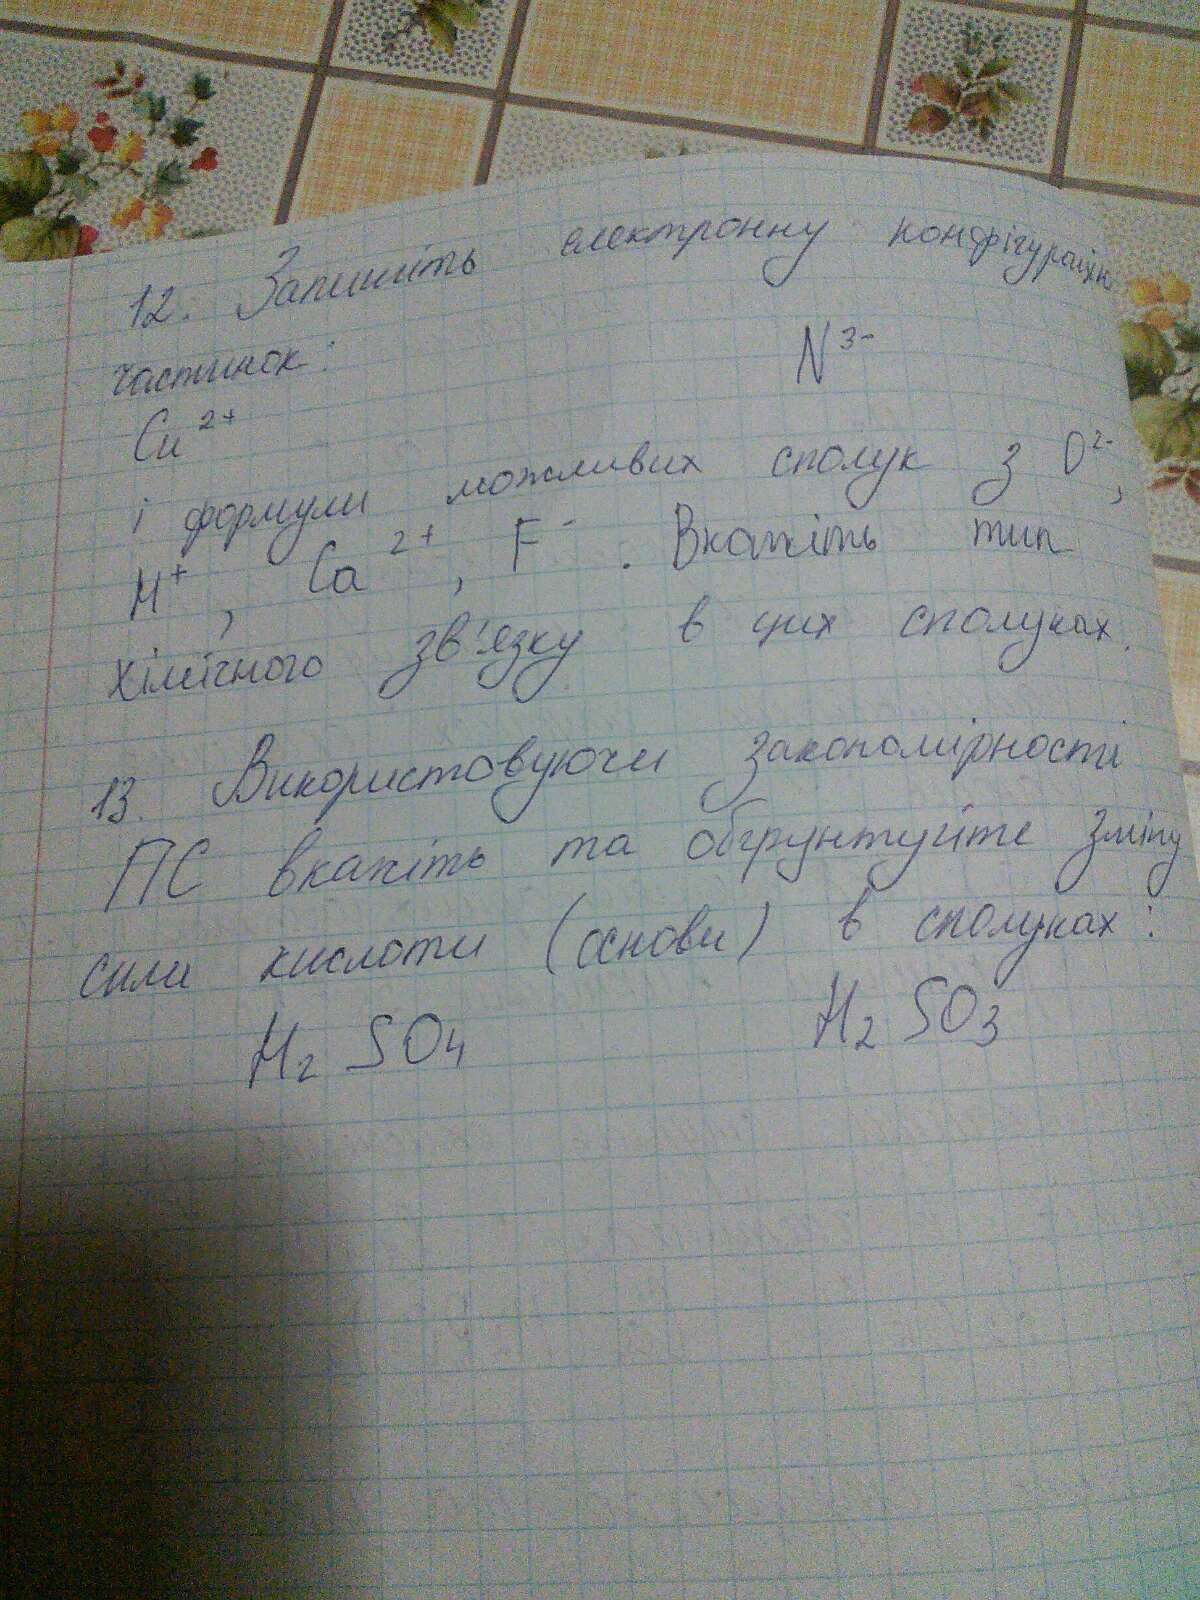 12. Запишіть електронну конфігурацію
частинок:
Cu²⁺ N³⁻
і формули можливих сполук з O²⁻,
H⁺, Ca²⁺, F⁻. Вкажіть тип
хімічного зв'язку в цих сполуках.
13. Використовуючи закономірності
ПС вкажіть та обгрунтуйте зміну
сили кислоти (основи) в сполуках:
H₂SO₄ H₂SO₃